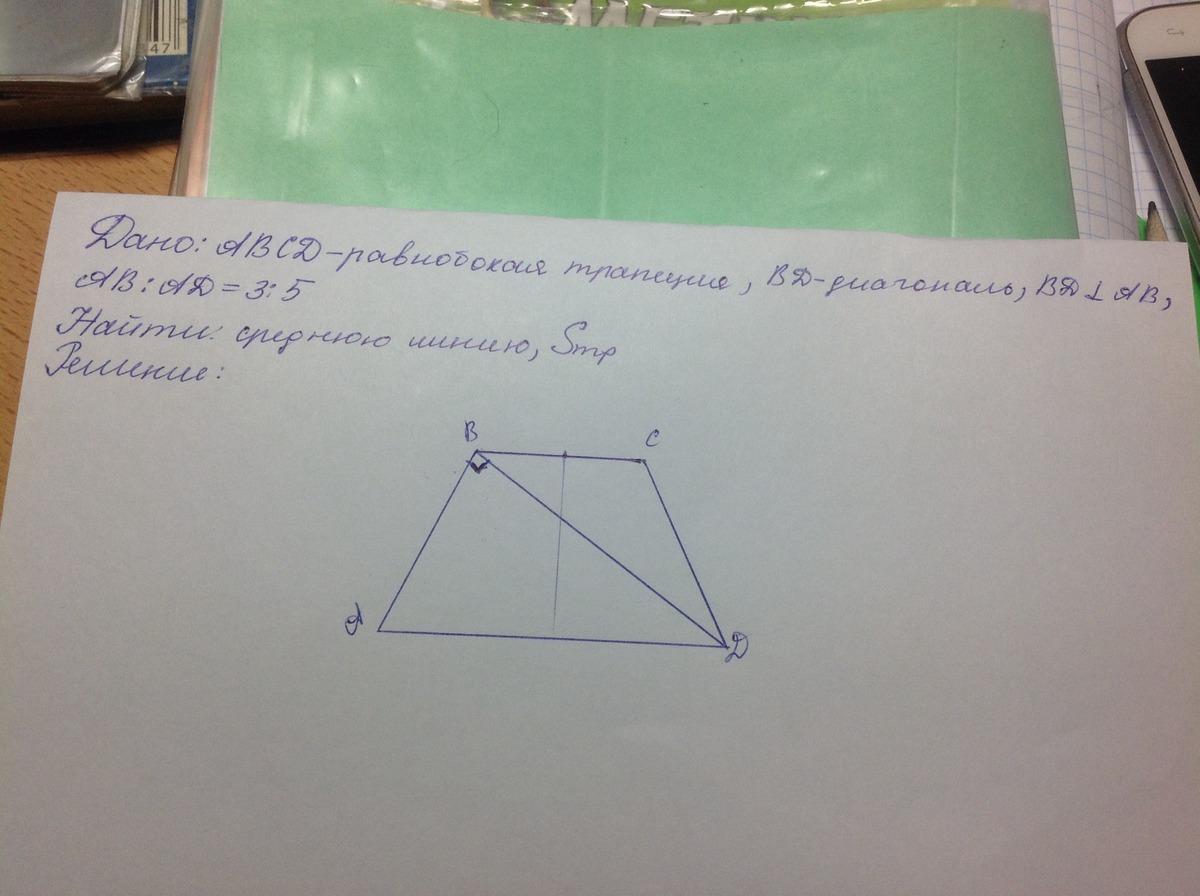 47
Дано: ABCD-равнобокая трапеция, BD-диагональ, BD⊥AB,
AB:AD=3:5
Найти: среднюю линию, Sтр
Решение:
B
C
A
D